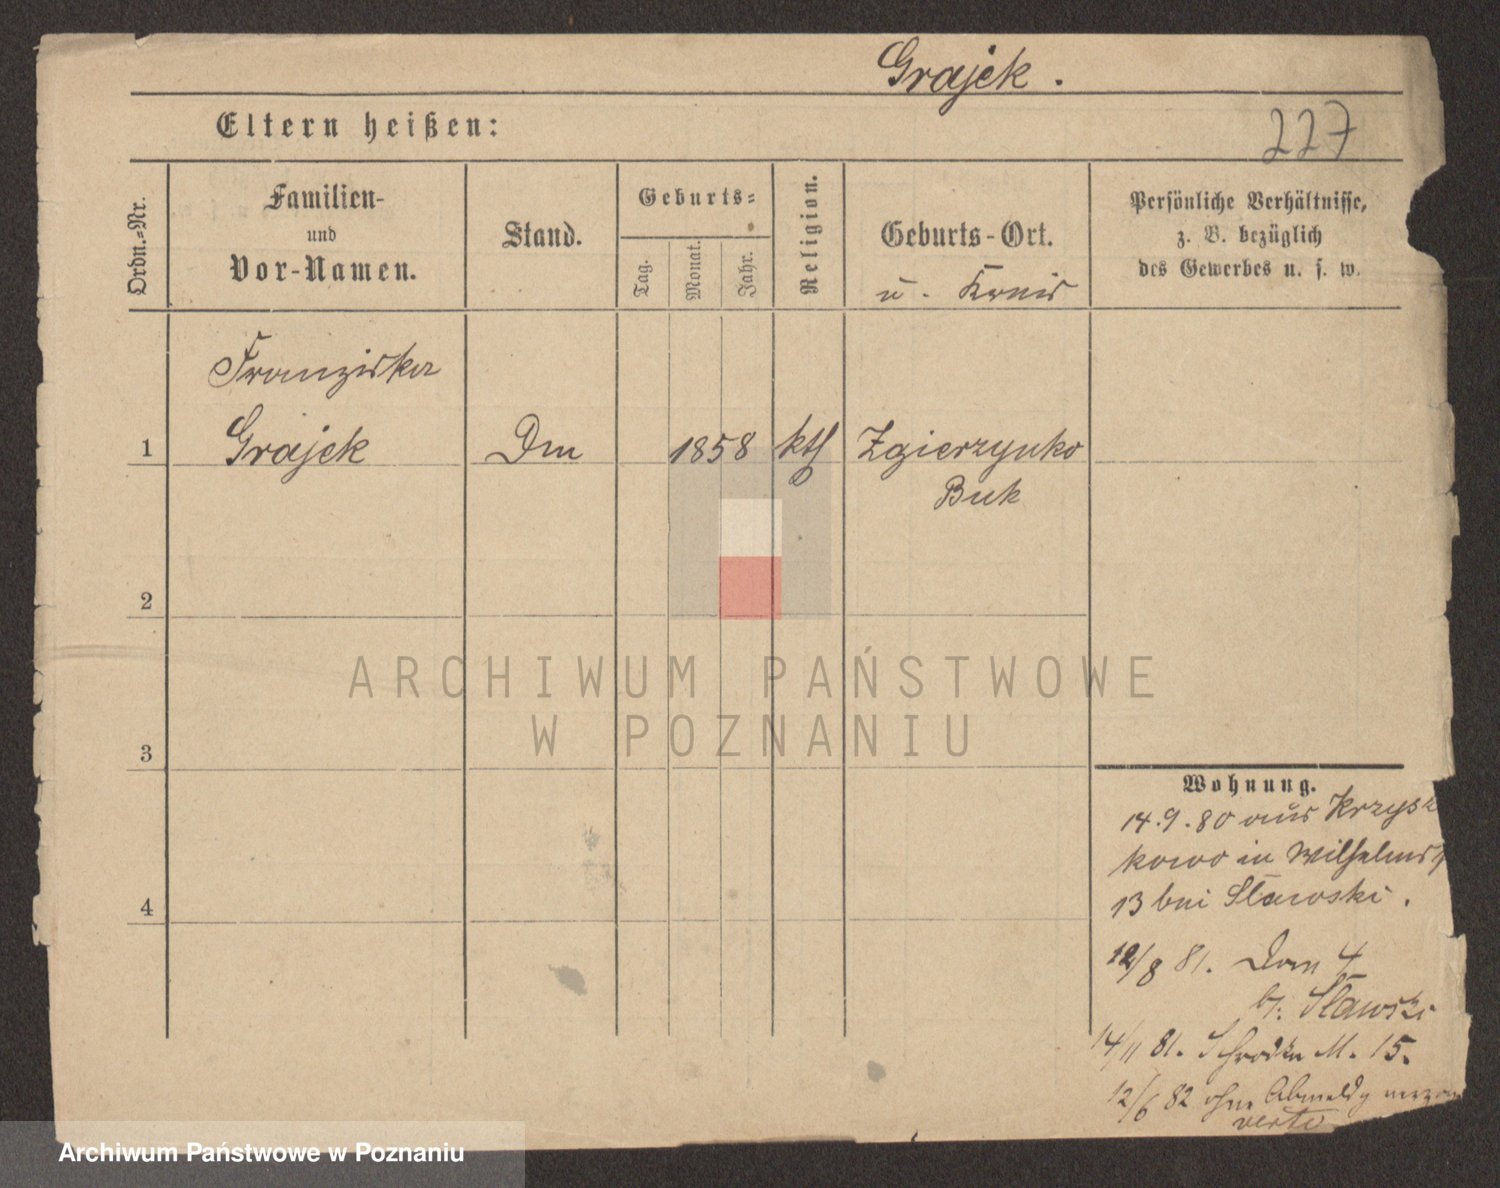 Grajek.
227
Eltern heißen:
Ordn.=Nr.
Familien-
und
Vor-Namen.
Stand.
Geburts=
Tag.
Monat.
Jahr.
Religion.
Geburts-Ort.
u. Kreis
Persönliche Verhältnisse,
z. B. bezüglich
des Gewerbes u. s. w.
Franziska
1 Grajek Dm 1858 kth Zgierzynko
Buk
2
3
4
ARCHIWUM PAŃSTWOWE
W POZNANIU
Wohnung.
14.9.80 aus Krzysz
kowo in Wilhelmst
13 bei Sławski.
12/8 81. Dom 4
b. Sławski
14/11 81. Schrodka M. 15.
12/6 82 ohne Abmeldg
verte
Archiwum Państwowe w Poznaniu